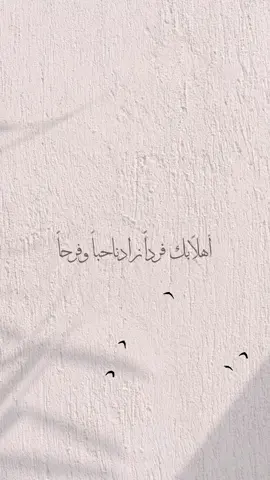 أهلاً بك فرداً زادنا حباً وفرحاً